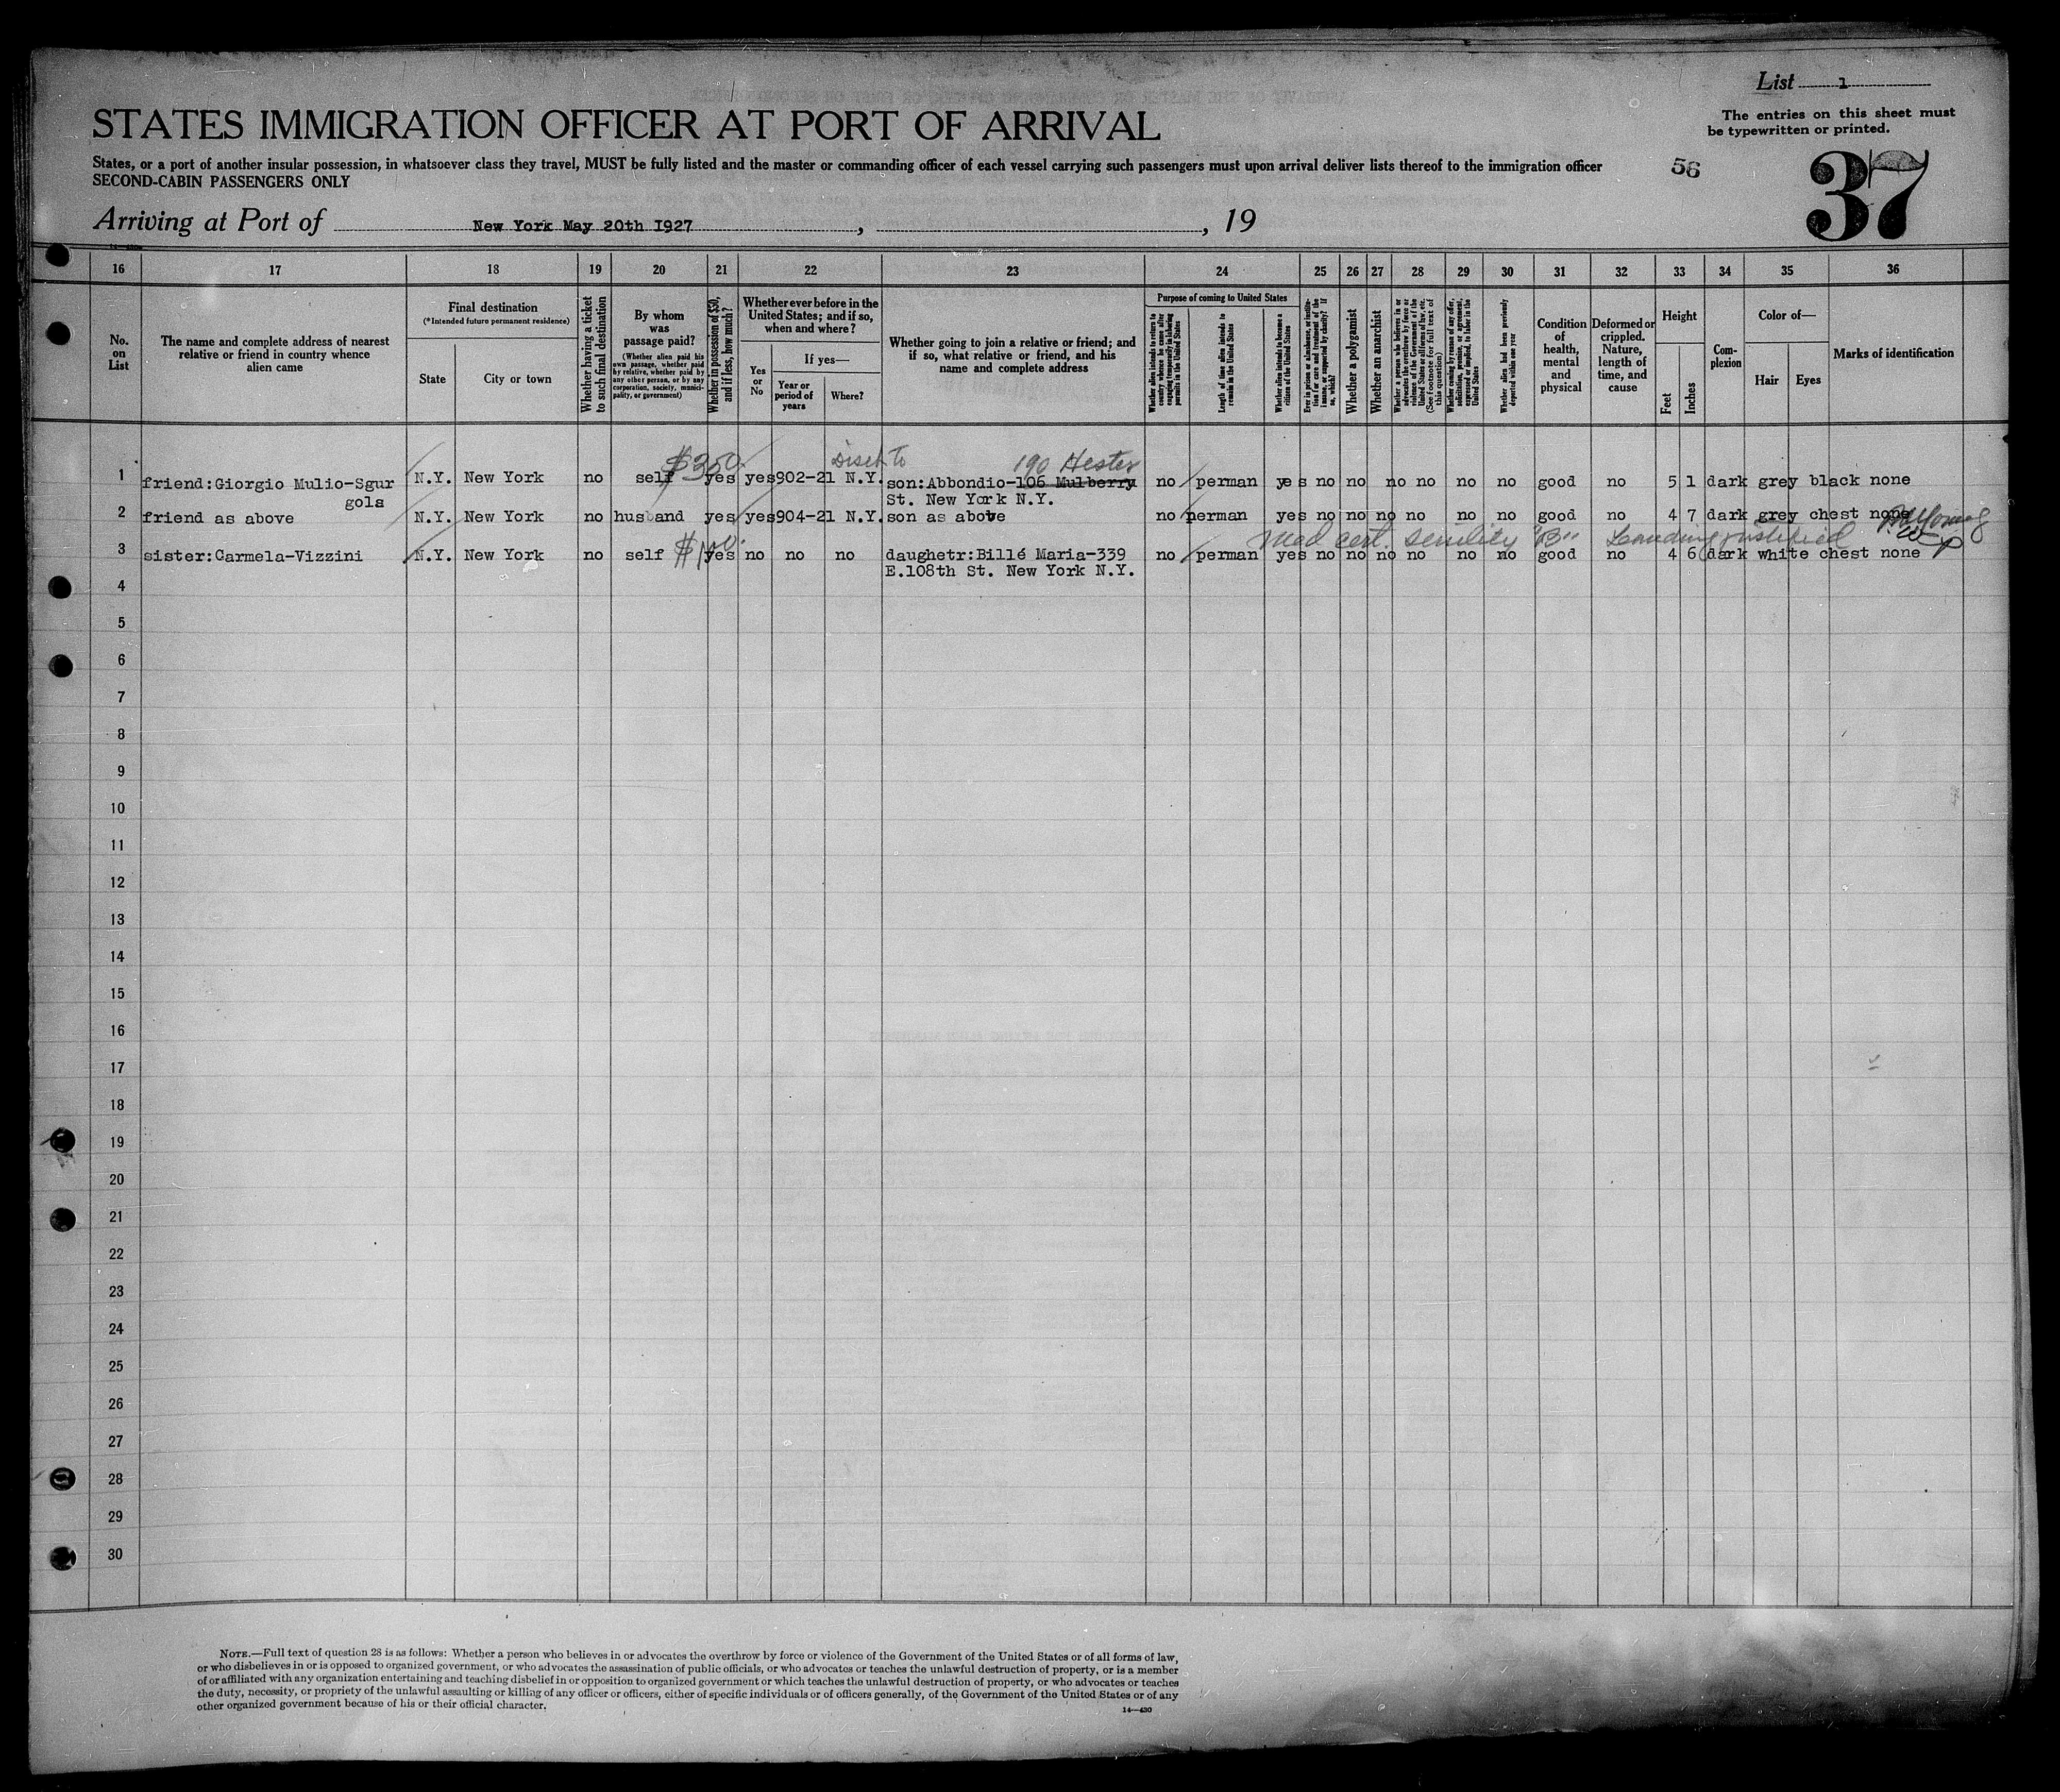 List 1
The entries on this sheet must
be typewritten or printed.
STATES IMMIGRATION OFFICER AT PORT OF ARRIVAL
States, or a port of another insular possession, in whatsoever class they travel, MUST be fully listed and the master or commanding officer of each vessel carrying such passengers must upon arrival deliver lists thereof to the immigration officer
SECOND-CABIN PASSENGERS ONLY
56
37
Arriving at Port of New York May 20th 1927, , 19
16 17 18 19 20 21 22 23 24 25 26 27 28 29 30 31 32 33 34 35 36
No. on List
The name and complete address of nearest relative or friend in country whence alien came
Final destination
(*Intended future permanent residence)
State
City or town
Whether having a ticket to such final destination
By whom was passage paid?
(Whether alien paid his own passage, whether paid by relative, whether paid by any other person, or by any corporation, society, municipality, or government)
Whether in possession of $50, and if less, how much?
Whether ever before in the United States; and if so, when and where?
Yes or No
If yes—
Year or period of years
Where?
Whether going to join a relative or friend; and if so, what relative or friend, and his name and complete address
Purpose of coming to United States
Whether alien intends to return to country whence he came after engaging temporarily in laboring pursuits in the United States
Length of time alien intends to remain in the United States
Whether alien intends to become a citizen of the United States
Ever in prison or almshouse, or institution for care and treatment of the insane, or supported by charity? If so, which?
Whether a polygamist
Whether an anarchist
Whether a person who believes in or advocates the overthrow by force or violence of the Government of the United States or all forms of law, etc. (See footnote for full text of this question)
Whether coming by reason of any offer, solicitation, promise, or agreement, expressed or implied, to labor in the United States
Whether alien had been previously deported within one year
Condition of health, mental and physical
Deformed or crippled. Nature, length of time, and cause
Height
Feet
Inches
Com-plexion
Color of—
Hair
Eyes
Marks of identification
$350. Disch to 190 Hester
1 friend:Giorgio Mulio-Sgur N.Y. New York no self yes yes 902-21 N.Y. son:Abbondio-106 Mulberry no perman yes no no no no no no good no 5 1 dark grey black none
gola St. New York N.Y.
2 friend as above N.Y. New York no husband yes yes 904-21 N.Y. son as above no perman yes no no no no no no good no 4 7 dark grey chest none
Med cert. senility "B" Landing justified
3 sister:Carmela-Vizzini N.Y. New York no self $100. yes no no no daughetr:Billé Maria-339 no perman yes no no no no no no good no 4 6 dark white chest none
E.108th St. New York N.Y.
4
5
6
7
8
9
10
11
12
13
14
15
16
17
18
19
20
21
22
23
24
25
26
27
28
29
30
NOTE.—Full text of question 28 is as follows: Whether a person who believes in or advocates the overthrow by force or violence of the Government of the United States or of all forms of law,
or who disbelieves in or is opposed to organized government, or who advocates the assassination of public officials, or who advocates or teaches the unlawful destruction of property, or is a member
of or affiliated with any organization entertaining and teaching disbelief in or opposition to organized government or which teaches the unlawful destruction of property, or who advocates or teaches
the duty, necessity, or propriety of the unlawful assaulting or killing of any officer or officers, either of specific individuals or of officers generally, of the Government of the United States or of any
other organized government because of his or their official character.
14—430